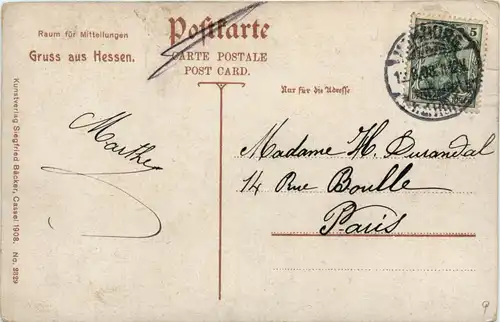 Raum für Mitteilungen
Gruss aus Hessen.
Postkarte
CARTE POSTALE
POST CARD.
Nur für die Adresse
5
Marthe
Madame H. Durandal
14 Rue Boulle
Paris
Kunstverlag Siegfried Bäcker, Cassel 1908. No. 2829